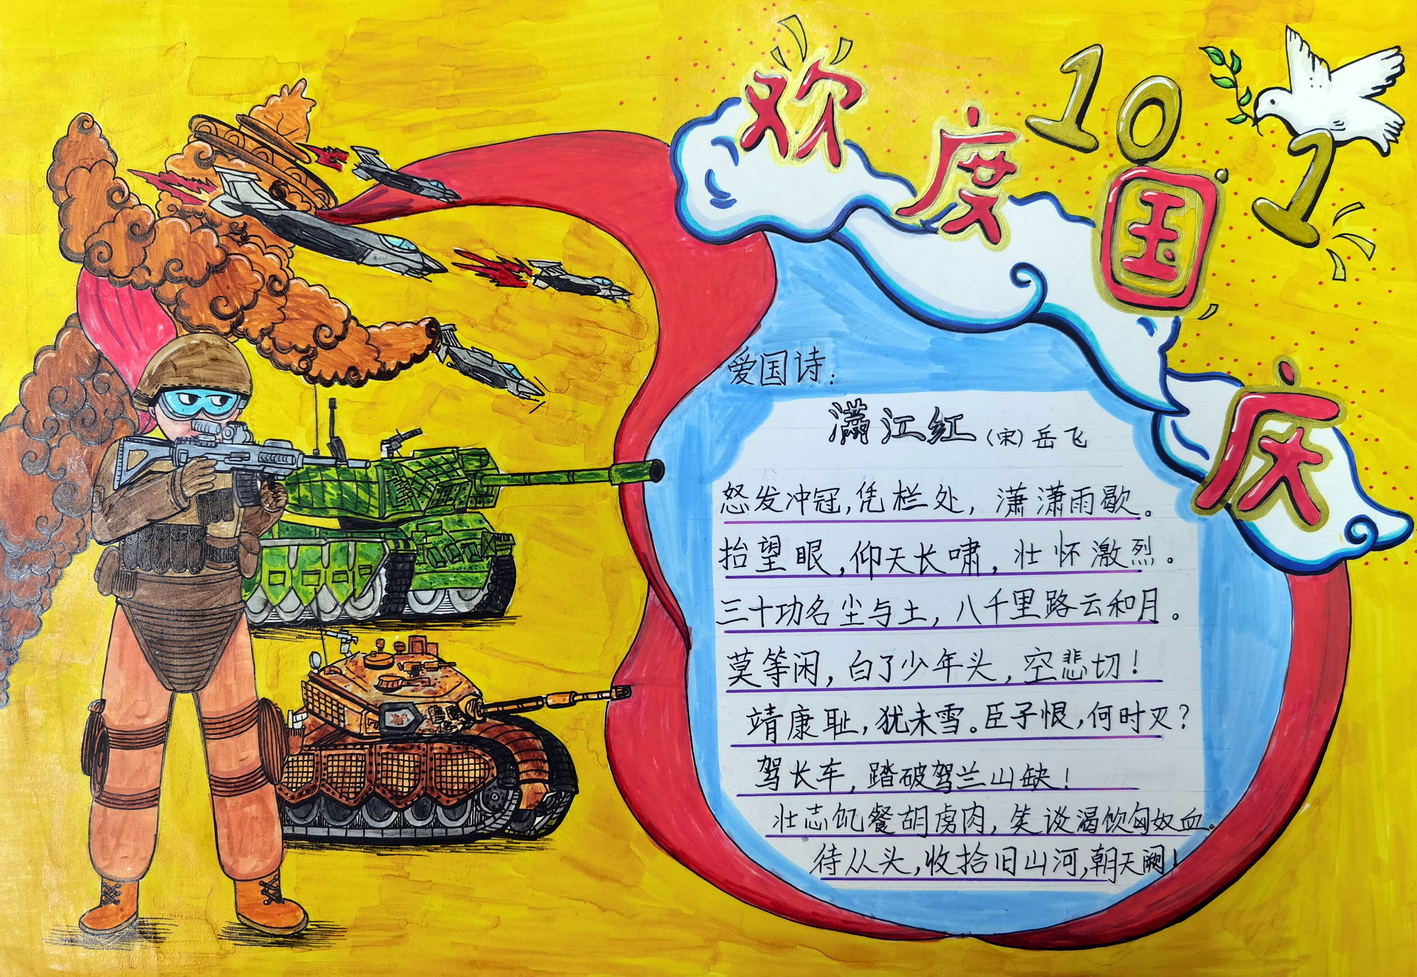 欢度国庆
10.1
爱国诗:
满江红(宋)岳飞
怒发冲冠,凭栏处,潇潇雨歇。
抬望眼,仰天长啸,壮怀激烈。
三十功名尘与土,八千里路云和月。
莫等闲,白了少年头,空悲切!
靖康耻,犹未雪。臣子恨,何时灭?
驾长车,踏破驾兰山缺!
壮志饥餐胡虏肉,笑谈渴饮匈奴血。
待从头,收拾旧山河,朝天阙!